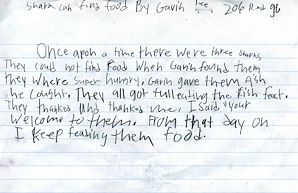 Shark can find food By Gavin Lee 206 Rm 96
Once apon a time there were three sharks
They could not find food When Gavin found them
they where super hungry. Gavin gave them fish
he cought. They all got full eating the fish feast.
They thanked and thanked me. I said your
welcome to them. From that day on
I keep feading them food.